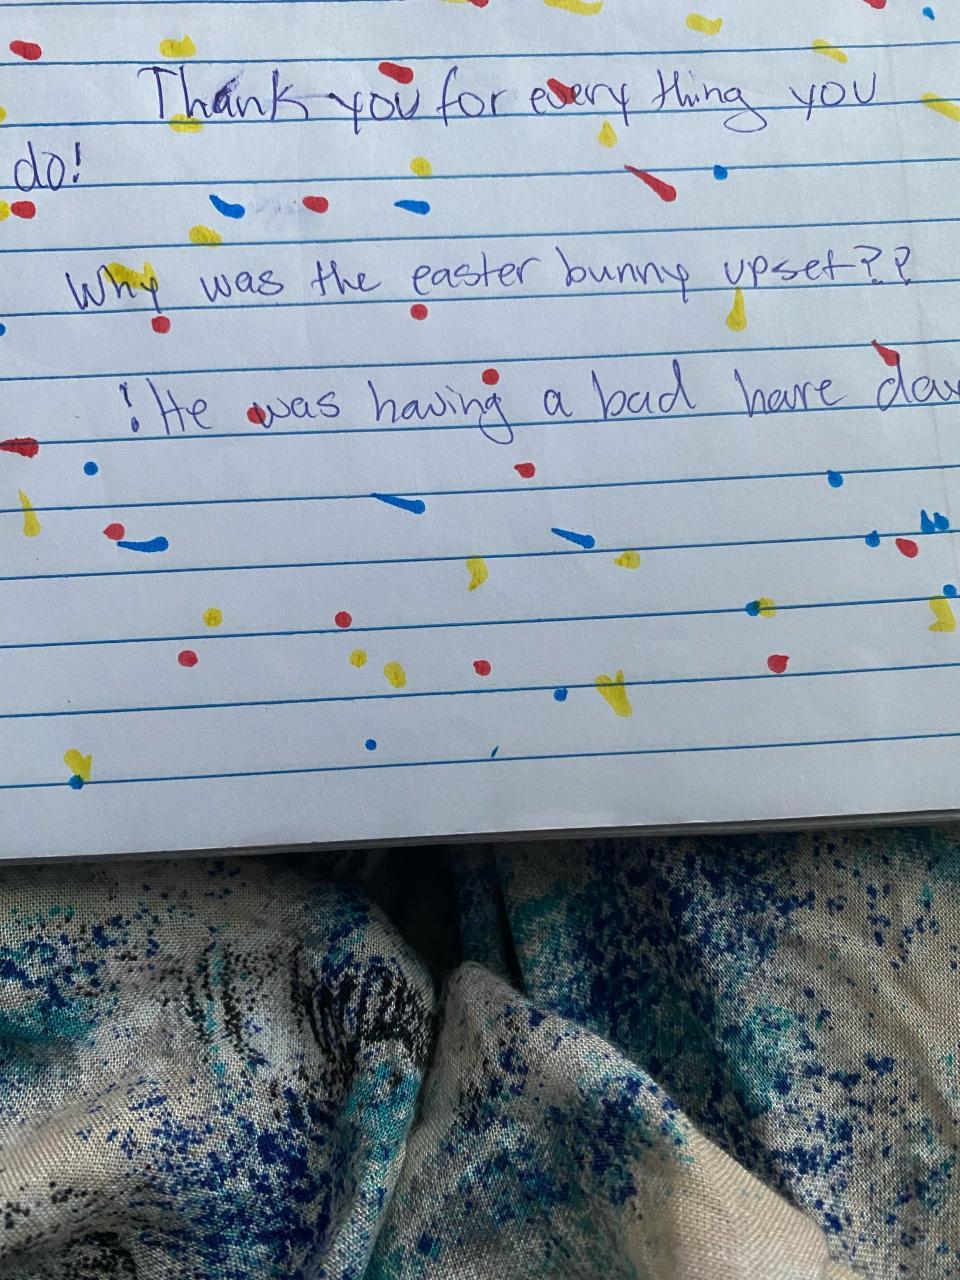 Thank you for every thing you
do!
Why was the easter bunny upset??
!He was having a bad hare day